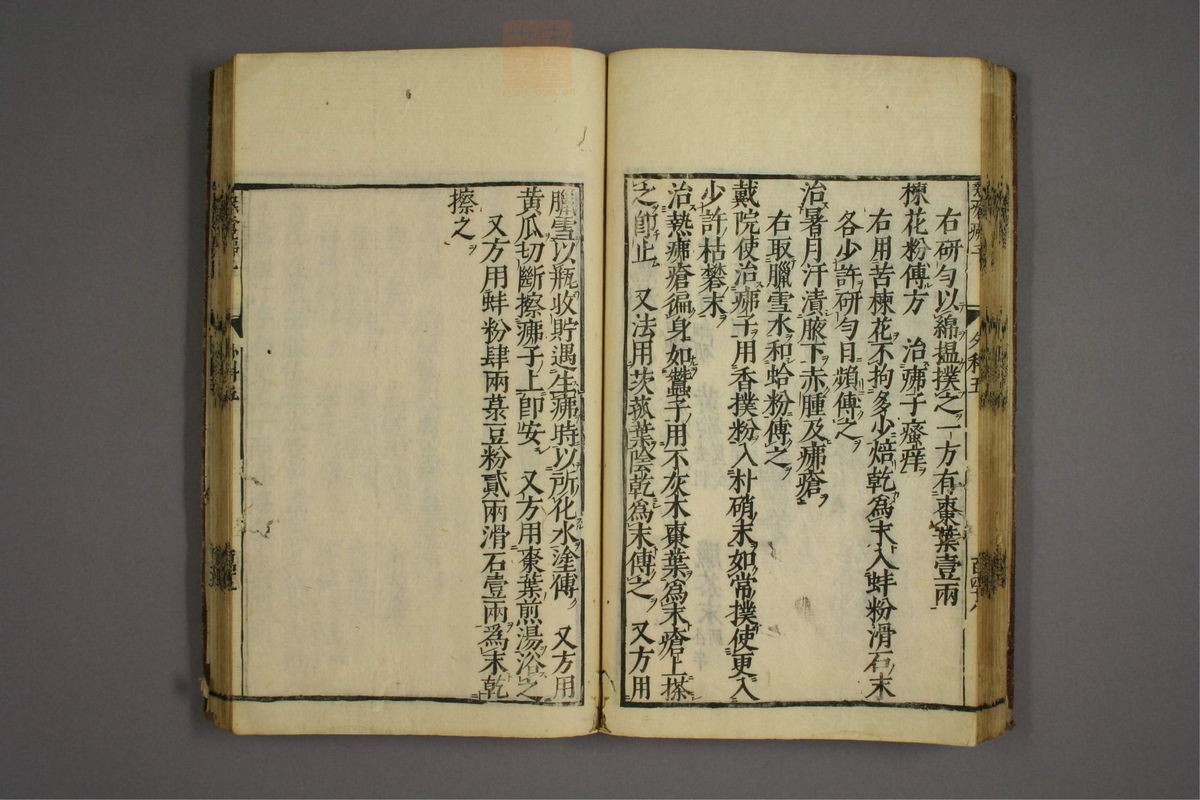 右研勻以綿揾撲之一方有棗葉壹兩
楝花粉傅方　治疿子瘙痒
右用苦楝花不拘多少焙乾爲末入蚌粉滑石末
各少許研勻日頻傅之
治暑月汗漬腋下赤腫及疿瘡
右取臘雪水和蛤粉傅之
戴院使治疿子用香撲粉入朴硝末如常撲使更入
少許枯礬末
治熱疿瘡徧身如蠶子用不灰木棗葉爲末瘡上搽
之卽止　又法用茨菰葉陰乾爲末傅之　又方用
臘雪以瓶收貯遇生疿時以所化水塗傅　又方用
黄瓜切斷擦疿子上卽安　又方用棗葉煎湯浴之
又方用蚌粉肆兩菉豆粉貳兩滑石壹兩爲末乾
擦之